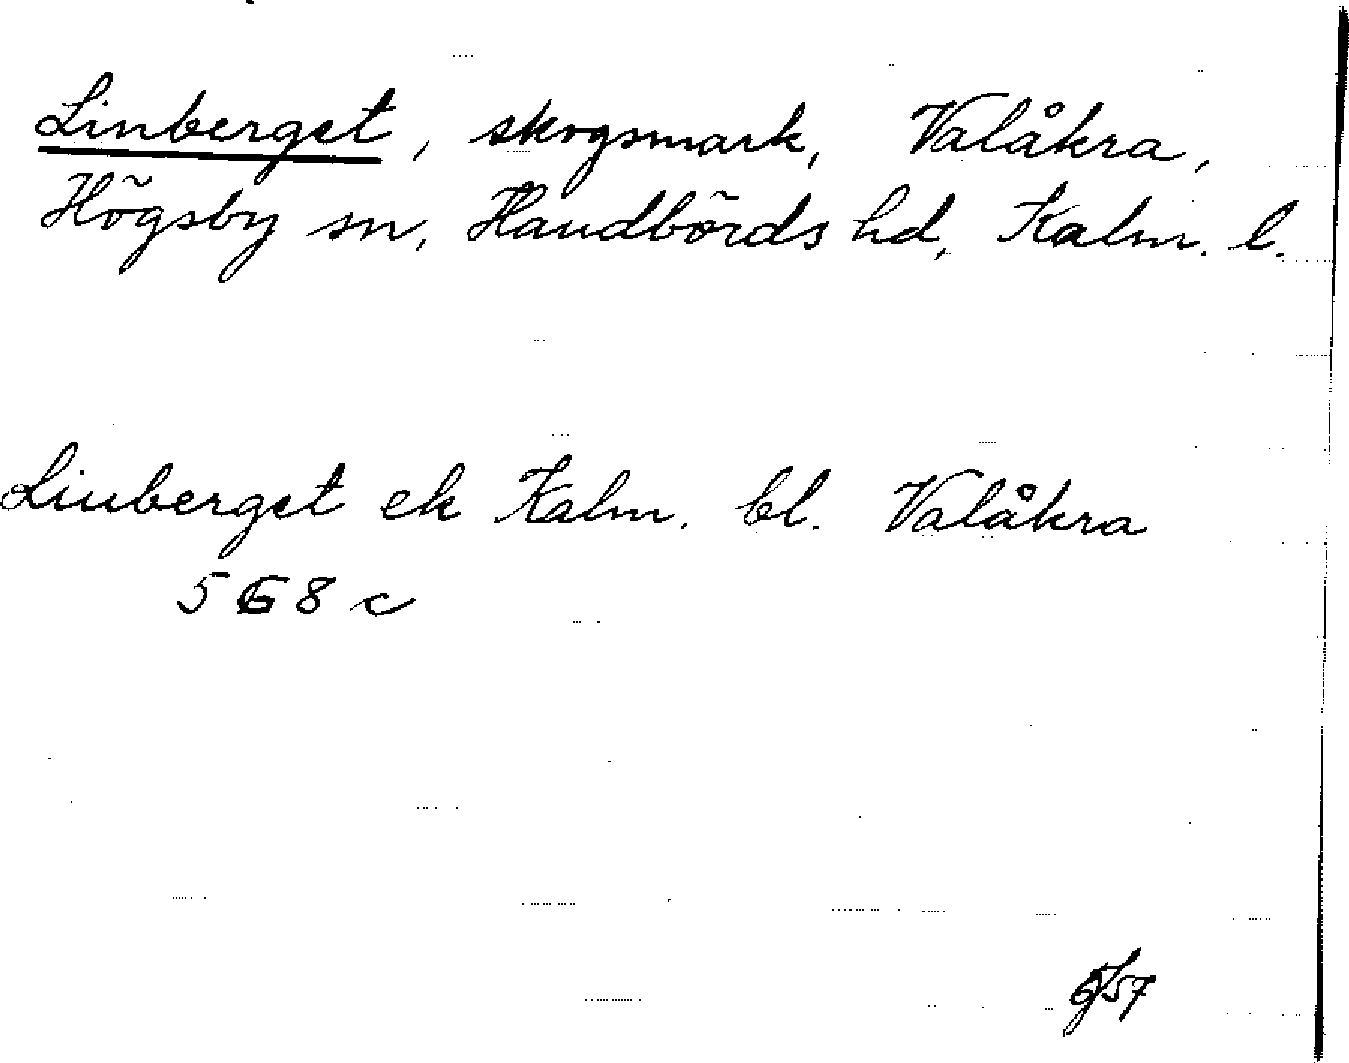 Linberget, skogsmark, Valåkra,
Högsby sn, Handbörds hd, Kalm. l.
Linberget ek Kalm. bl. Valåkra
568 c
6/57